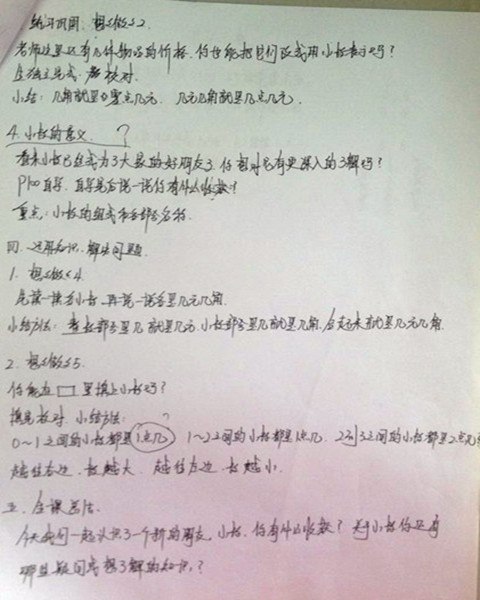 练习巩固：想想做做2.
老师这里还有几件物品的价格，你能把它们改成用小数表示吗？
生独立完成，校对.
小结：几角就是零点几元，几元几角就是几点几元.
4.小数的意义. ?
看来小数已经成为了大家的好朋友了，你想对它有更深入的了解吗？
P100自学，自学完后说一说你有什么收获？
重点：小数的组成和各部分名称.
四、运用知识，解决问题
1. 想想做做4.
先读一读各小数，再说一说各是几元几角.
小结方法：整数部分是几就是几元，小数部分是几就是几角，合起来就是几元几角.
2. 想想做做5.
你能在□里填上小数吗？
填完校对，小结方法: ?
0~1之间的小数都是1点几 1~2之间的小数都是1点几，2到3之间的小数都是2点几
越往右边，数越大，越往左边，数越小.
五、全课总结.
今天我们一起认识了一个新的朋友，小数，你有什么收获？关于小数你还有
哪些疑问或想了解的知识？